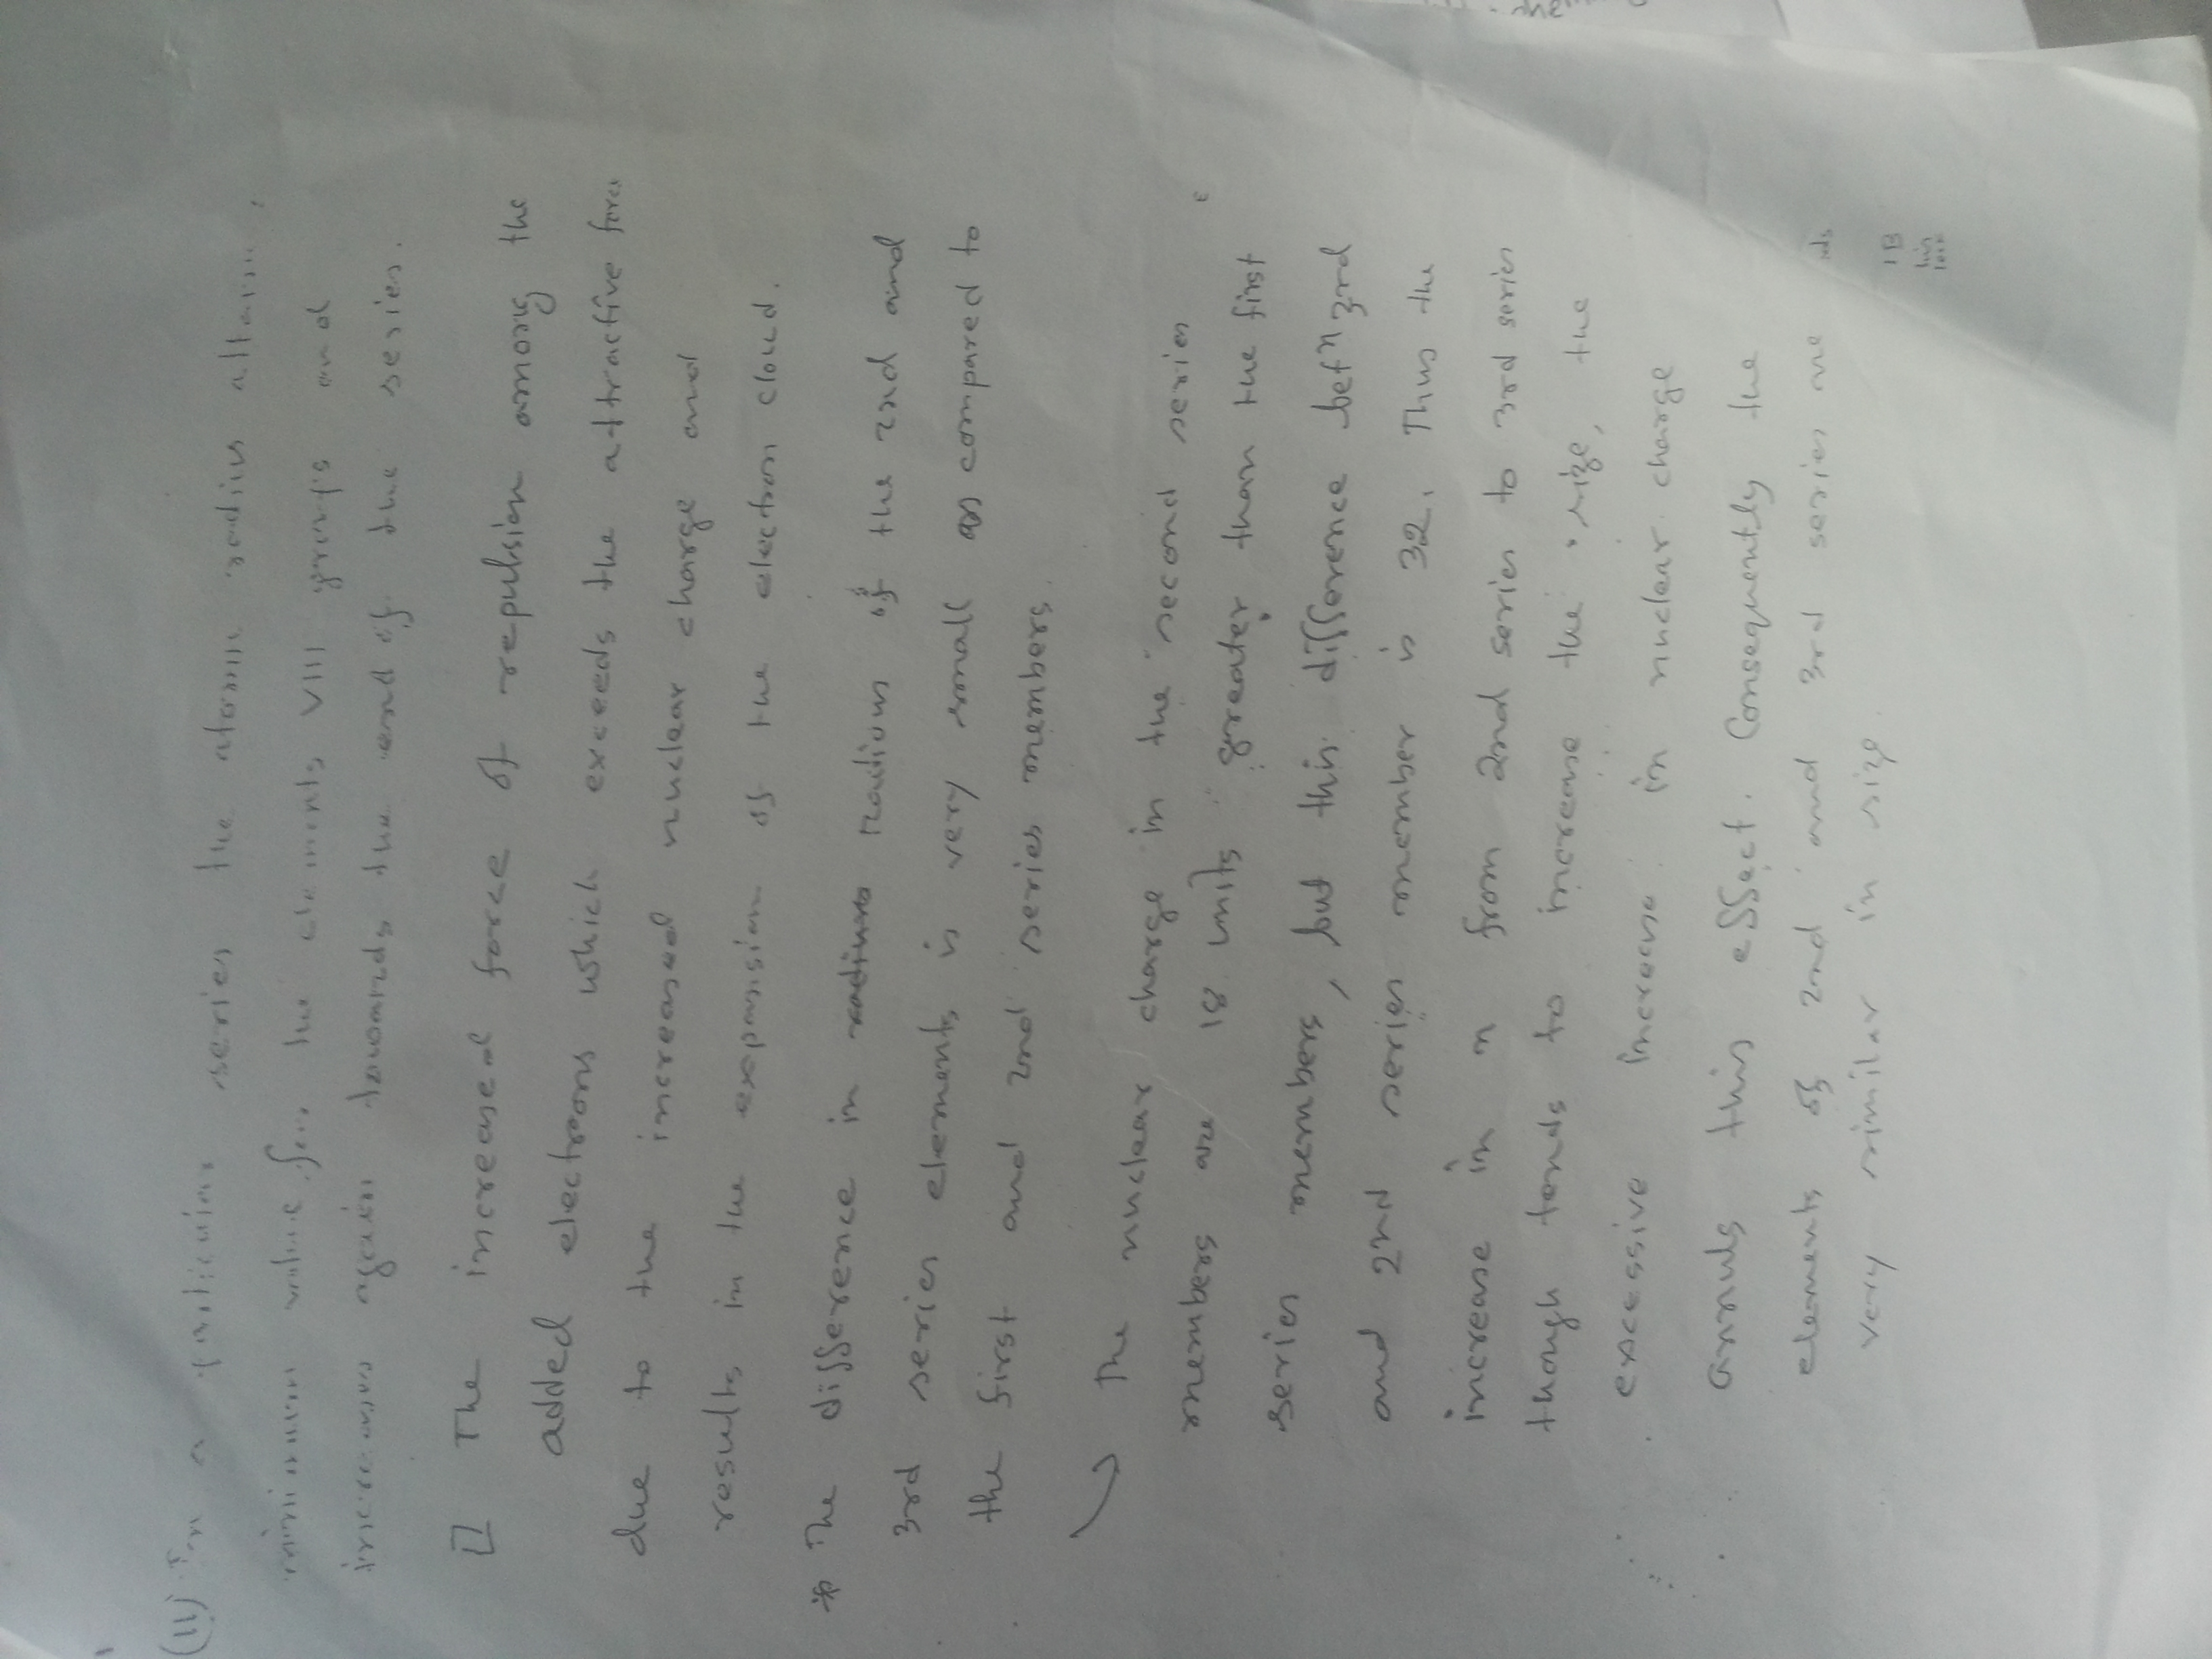 (II) In a particular series the atomic radius attains
minimum value for the elements VIII groups and
increases again towards the end of the series.
[] The increased force of repulsion among the
added electrons which exceeds the attractive force
due to the increased nuclear charge and
results in the expansion of the electron cloud.
* The difference in radius of the 2nd and
3rd series elements is very small as compared to
the first and 2nd series members.
↳ The nuclear charge in the second series
members are 18 units greater than the first
series members, but this difference betn 3rd
and 2nd series member is 32. Thus the
increase in n from 2nd series to 3rd series
though tends to increase the size, the
excessive increase in nuclear charge
annuls this effect. Consequently the
elements of 2nd and 3rd series are
very similar in size.
1B